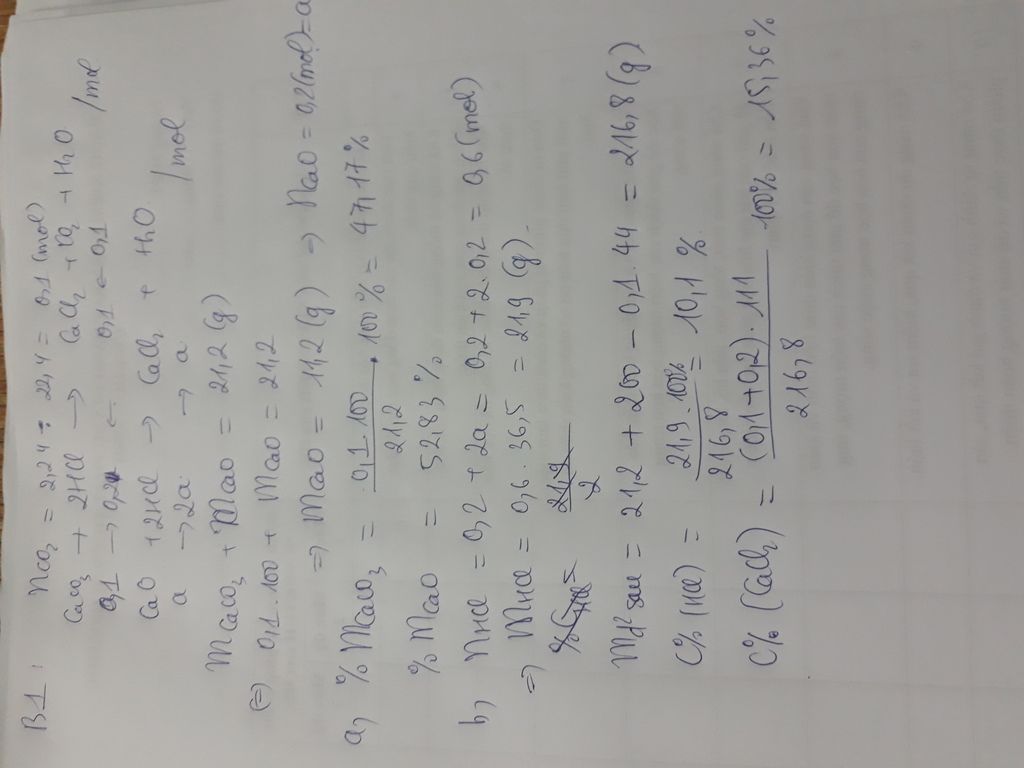 B1: nCO₂ = 2,24 : 22,4 = 0,1 (mol)
CaCO₃ + 2HCl → CaCl₂ + CO₂ + H₂O
0,1 → 0,2 ← 0,1 ← 0,1 /mol
CaO + 2HCl → CaCl₂ + H₂O
a → 2a → a /mol
mCaCO₃ + mCaO = 21,2 (g)
(=) 0,1.100 + mCaO = 21,2
=) mCaO = 11,2 (g) =) nCaO = 0,2 (mol) = a
a, % mCaCO₃ = 0,1.100 / 21,2 . 100% = 47,17%
% mCaO = 52,83 %
b, nHCl = 0,2 + 2a = 0,2 + 2.0,2 = 0,6 (mol)
=) mHCl = 0,6 . 36,5 = 21,9 (g).
md² sau = 21,2 + 200 - 0,1.44 = 216,8 (g)
C% (HCl) = 21,9.100% / 216,8 = 10,1 %
C% (CaCl₂) = (0,1+0,2).111 / 216,8 .100% = 15,36%